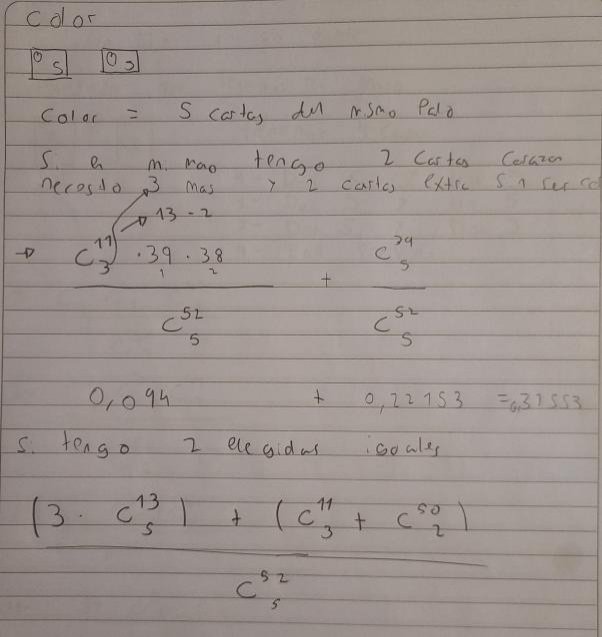 Color
O S O S
Color = 5 cartas del mismo Palo
Si en mi mano tengo 2 cartas Corazon
necesito 3 mas y 2 cartas extra
13 - 2
→ C 11 3 . 39 . 38 + C 39 5
1 2
C 52 5 C 52 5
0,094 + 0,22153 = 0,31553
Si tengo 2 elegidas iguales
(3 . C 13 5) + (C 11 3 + C 50 2)
C 52 5